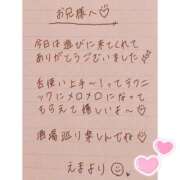 お兄様へ♡
今日は遊びに来てくれて
ありがとうございました
舌使い上手〜！ってテクニ
ックにメロメロになって
もらえて嬉しいよ〜♡
温泉巡り楽しんでね♡
えまより